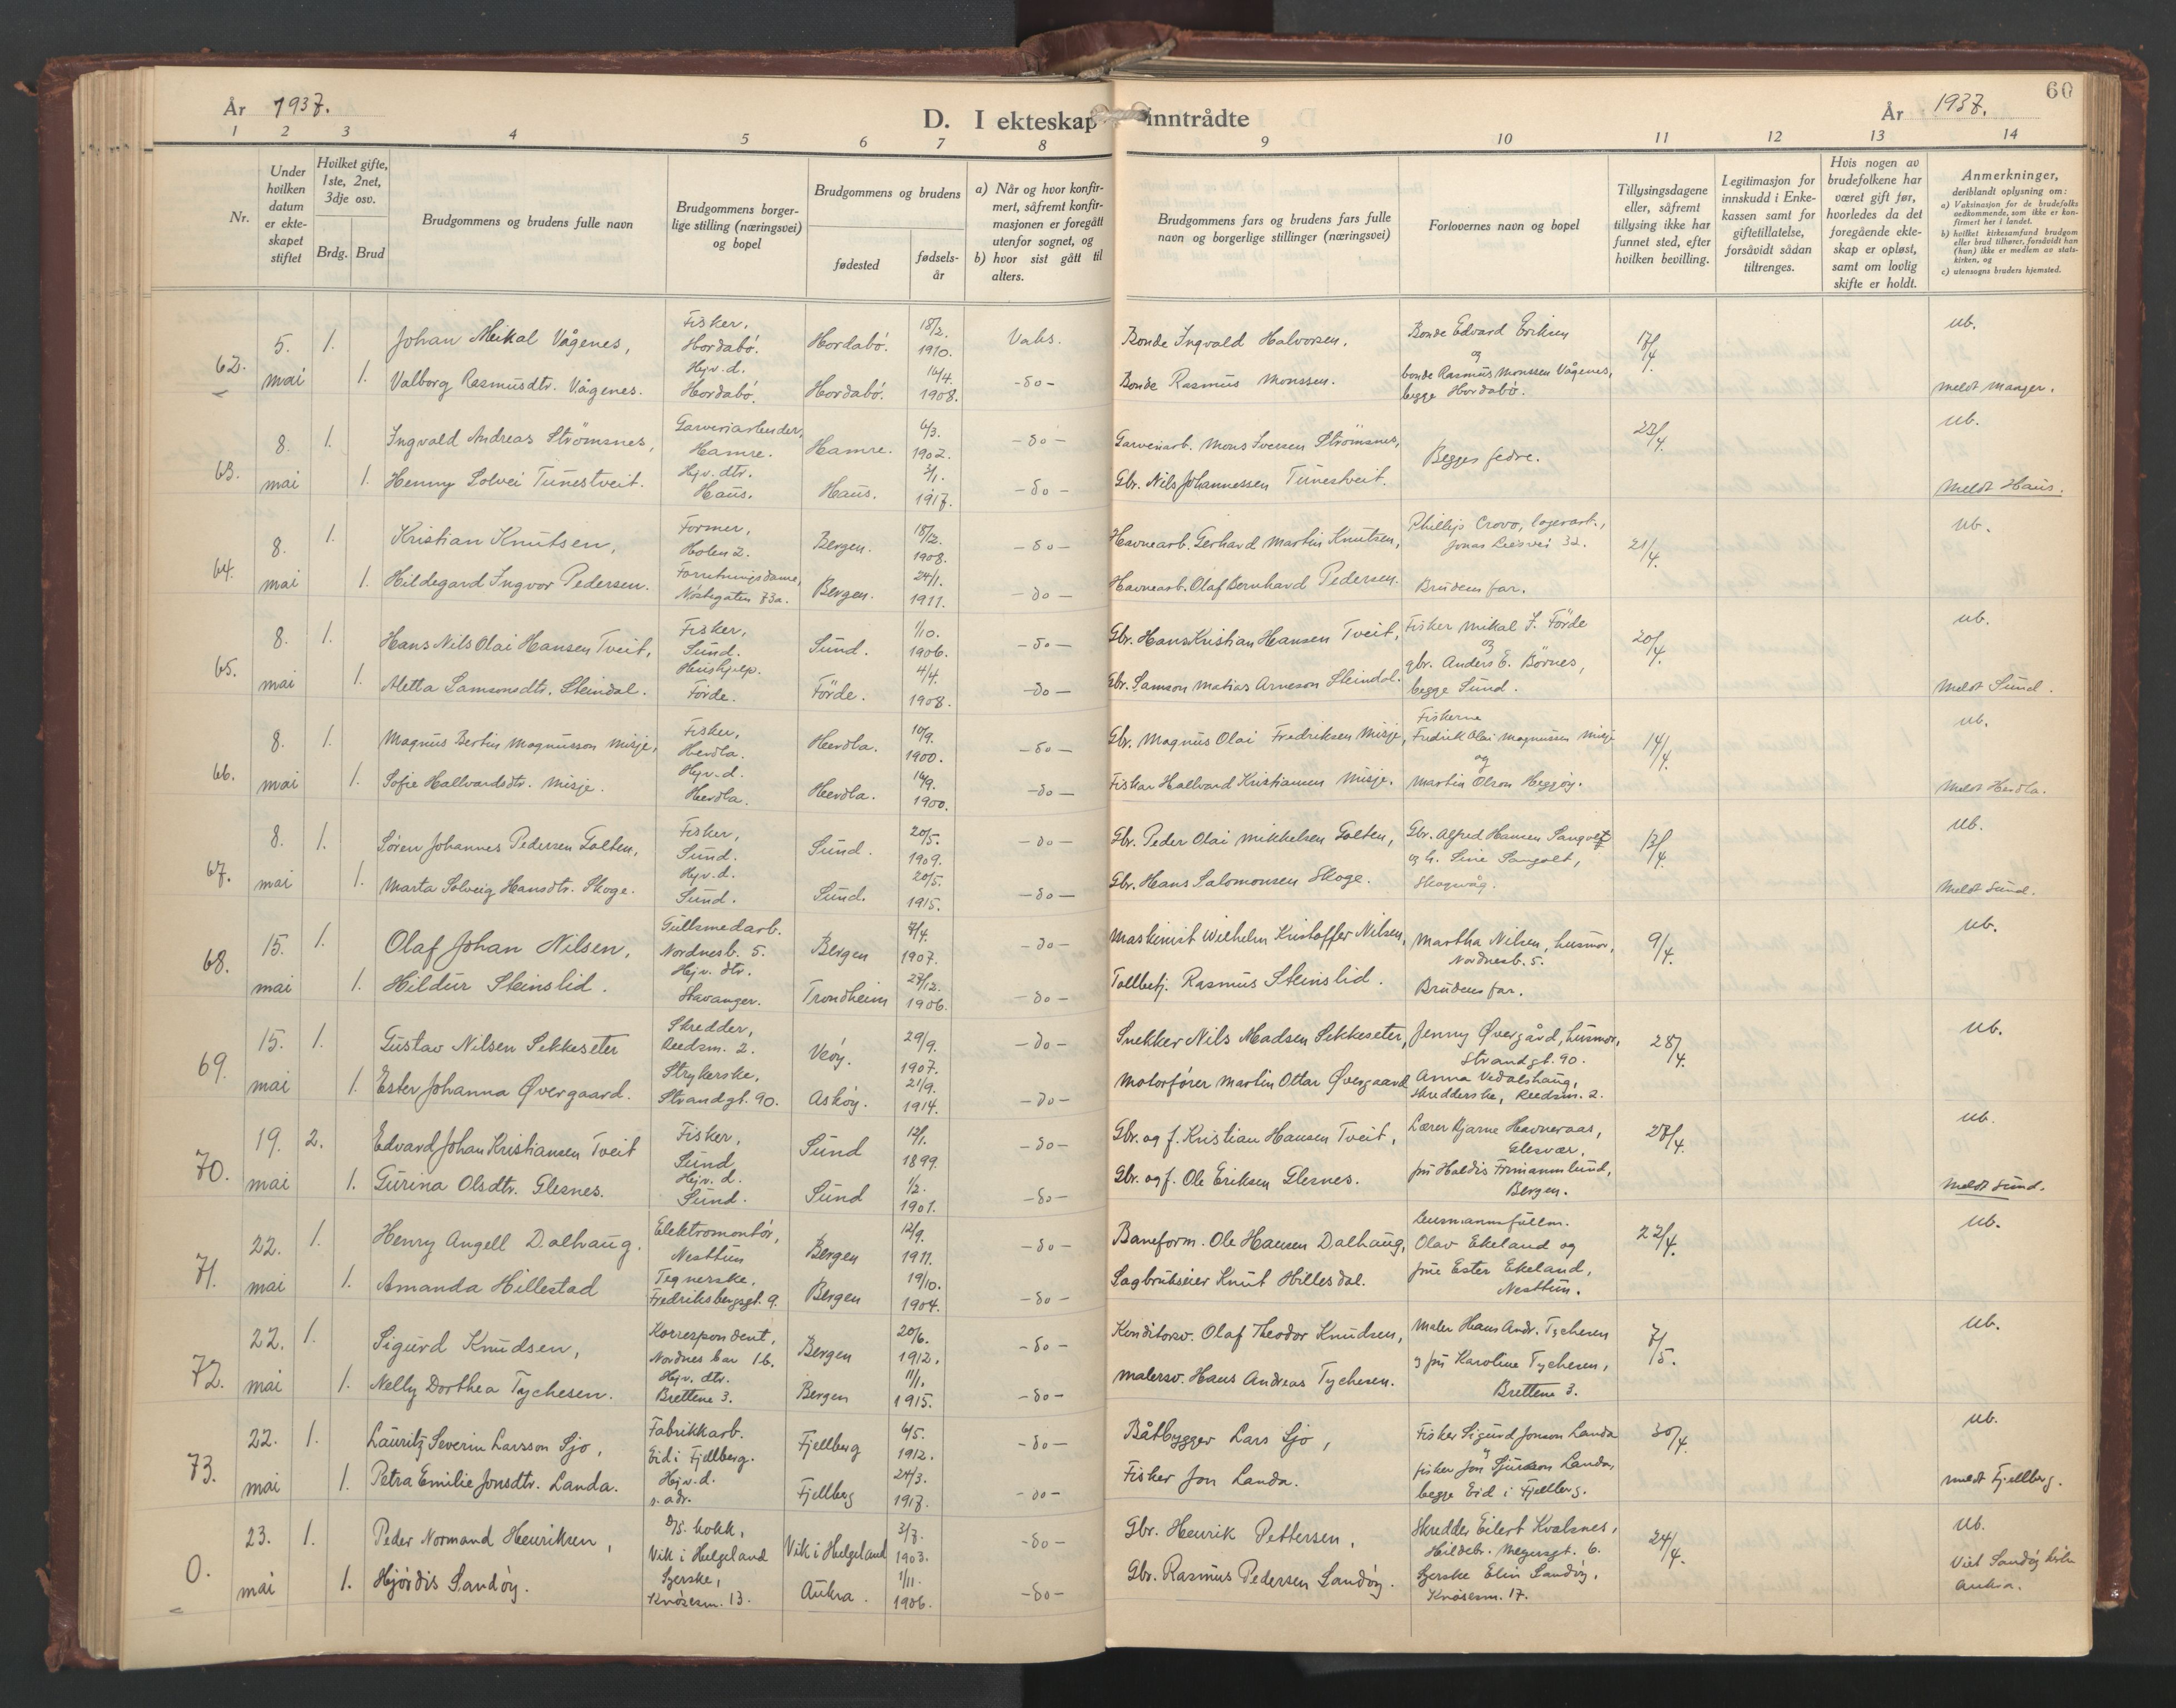 60
År 1937.
D. I ekteskap inntrådte
År 1937.
1 2 3 4 5 6 7 8 9 10 11 12 13 14
Nr.
Under hvilken datum er ekteskapet stiftet
Hvilket gifte, 1ste, 2net, 3dje osv.
Brdg. Brud
Brudgommens og brudens fulle navn
Brudgommens borgerlige stilling (næringsvei) og bopel
Brudgommens og brudens
fødested
fødselsår
a) Når og hvor konfirmert, såfremt konfirmasjonen er foregått utenfor sognet, og
b) hvor sist gått til alters.
Brudgommens fars og brudens fars fulle navn og borgerlige stillinger (næringsvei)
Forlovernes navn og bopel
Tillysingsdagene eller, såfremt tillysing ikke har funnet sted, efter hvilken bevilling.
Legitimasjon for innskudd i Enkekassen samt for giftetillatelse, forsåvidt sådan tiltrenges.
Hvis nogen av brudefolkene har været gift før, hvorledes da det foregående ekteskap er opløst, samt om lovlig skifte er holdt.
Anmerkninger, deriblandt oplysning om:
a) Vaksinasjon for de brudefolks vedkommende, som ikke er konfirmert her i landet.
b) hvilket kirkesamfund brudgom eller brud tilhører, forsåvidt han (hun) ikke er medlem av statskirken, og
c) utensogns bruders hjemsted.
62. 5. mai 1. Johan Mikal Vågenes, Fisker, Hordabö. Hordabö. 18/2. 1910. Vaks. Bonde Ingvald Halvorsen. Bonde Edvard Eriksen og 17/4. ub.
1. Valborg Rasmusdtr. Vågenes. Hjv. d. Hordabö. Hordabö. 14/4. 1908. -do- Bonde Rasmus Monssen. bonde Rasmus Monssen Vågenes, begge Hordabö. meldt Manger.
63. 8. mai 1. Ingvald Andreas Strömsnes, Garveriarbeider, Hamre. Hamre. 6/3. 1902. -do- Garveriarb. Mons Iversen Strömsnes, Begges fedre. 23/4. ub.
1. Henny Solvei Tunestveit. Hjv. dtr. Haus. Haus. 3/1. 1917. -do- Gbr. Nils Johannessen Tunestveit. Meldt Haus.
64. 8. mai 1. Kristian Knutsen, Former, Holen 2. Bergen. 18/12. 1908. -do- Havnearb. Gerhard Martin Knutsen, Phillip Crovo, lagerarb., Jonas Liesvei 32. 21/4. ub.
1. Hildegard Ingvor Pedersen. Forretningsdame, Nöstegaten 73a. Bergen. 24/1. 1911. -do- Havnearb. Olaf Bernhard Pedersen. Brudens far.
65. 8. mai 1. Hans Nils Olai Hansen Tveit, Fisker, Sund. Sund. 1/10. 1906. -do- Gbr. Hans Kristian Hansen Tveit, Fisker Mikal J. Förde og 20/4. ub.
1. Aletta Samsonsdtr. Steindal. Hushjelp. Förde. Förde. 4/4. 1908. -do- Gbr. Samson Matias Arneson Steindal. gbr. Anders E. Börnes, begge Sund. Meldt Sund.
66. 8. mai 1. Magnus Bertin Magnusson Misje, Fisker, Herdla. Herdla. 10/9. 1900. -do- Gbr. Magnus Olai Fredriksen Misje, Fiskerne Fredrik Olai Magnussen Misje og 14/4. ub.
1. Sofie Hallvardsdtr. Misje. Hjv. d. Herdla. Herdla. 14/9. 1900. -do- Fisker Hallvard Kristiansen Misje. Martin Olson Heggöy. Meldt Herdla.
67. 8. mai 1. Sören Johannes Pedersen Golten, Fisker, Sund. Sund. 20/5. 1909. -do- Gbr. Peder Olai Mikkelsen Golten, Gbr. Alfred Hansen Sangolt 13/4. ub.
1. Marta Solveig Hansdtr. Skoge. Hjv. d. Sund. Sund. 20/5. 1915. -do- Gbr. Hans Salomonsen Skoge. og h. Sine Sangolt, Skogsvåg. Meldt Sund.
68. 15. mai 1. Olaf Johan Nilsen, Gullsmedarb. Nordnesb. 5. Bergen 7/4. 1907. -do- Maskinist Wilhelm Kristoffer Nilsen, Martha Nilsen, husmor, Nordnesb. 5. 9/4. ub.
1. Hildur Steinslid. Hjv. dtr. Stavanger. Trondheim 27/12. 1906. -do- Tollbetj. Rasmus Steinslid. Brudens far.
69. 15. mai 1. Gustav Nilsen Sekkeseter Skredder, Reedsm. 2. Veöy. 29/9. 1907. -do- Snekker Nils Madsen Sekkeseter, Jenny Øvergård, husmor, Strandgt. 90. 28/4. ub.
1. Ester Johanna Øvergaard. Strykerske, Strandgt. 90. Asköy. 21/9. 1914. -do- Motorförer Martin Ottar Øvergaard Anna Vedalshaug, skredderske, Reedsm. 2.
70. 19. mai 2. Edvard Johan Kristiansen Tveit Fisker, Sund Sund 12/1. 1899. -do- Gbr. og f. Kristian Hansen Tveit, Lærer Bjarne Havneraas, Glesvær, 28/4. ub.
1. Gurina Olsdtr. Glesnes. Hjv. d. Sund. Sund 1/2. 1901. -do- Gbr. og f. Ole Eriksen Glesnes. fru Haldis Frimannslund, Bergen. Meldt Sund.
71. 22. mai 1. Henry Angell Dalhaug. Elektromontör, Nesttun Bergen 12/9. 1911. -do- Baneform. Ole Hansen Dalhaug, Lensmannsfullm. Olav Ekeland og 22/4. ub.
1. Amanda Hillestad Tegnerske, Fredriksbergsgt. 9. Bergen 19/10. 1904. -do- Sagbrukseier Knut Hillesdal. frue Ester Ekeland, Nesttun.
72. 22. mai 1. Sigurd Knudsen, Korrespondent, Nordnesbar 16. Bergen 20/6. 1912. -do- Konditorsv. Olaf Theodor Knudsen, Maler Hans Andr. Tychesen 7/5. ub.
1. Nelly Dorthea Tychesen. Hjv. dtr. Brettene 3. Bergen 11/1. 1915. -do- Malersv. Hans Andreas Tychesen. og fru Karoline Tychesen, Brettene 3.
73. 22. mai 1. Lauritz Severin Larsson Sjo, Fabrikkarb. Eid i Fjellberg. Fjellberg 6/5. 1912. -do- Båtbygger Lars Sjo, Fisker Sigurd Jonson Landa og 30/4. ub.
1. Petra Emilie Jonsdtr. Landa. Hjv. d. s. adr. Fjellberg 24/3. 1917. -do- Fisker Jon Landa. fisker Jon Sjurson Landa, begge Eid i Fjellberg. meldt Fjellberg.
0. 23. mai 1. Peder Normand Henriksen, D/S. kokk, Vik i Helgeland Vik i Helgeland 3/7. 1903. -do- Gbr. Henrik Pettersen, Skredder Eilert Kvalsnes, Hildebr. Meyersgt. 6. 24/4. ub.
1. Hjördis Sandöy. Syerske, Knösesm. 13. Aukra. 1/11. 1906. -do- Gbr. Rasmus Pedersen Sandöy. Syerske Elin Sandöy, Knösesm. 17. Viet Sandöy kirke Aukra.